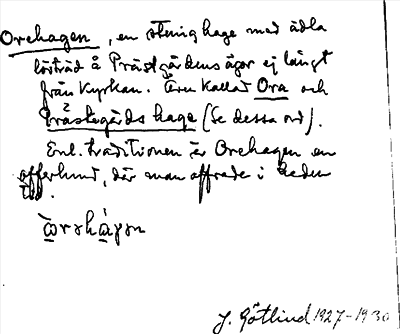 Orehagen, en stenig hage med ädla
lövträd å Prästgårdens ägor ej långt
från kyrkan. Även kallad Ora och
Prästegårds hage (Se dessa ord).
Enl. traditionen är Orehagen en
offerlund, där man offrade i heden
tid.
òrəhàgən
J. Götlind 1927-1930